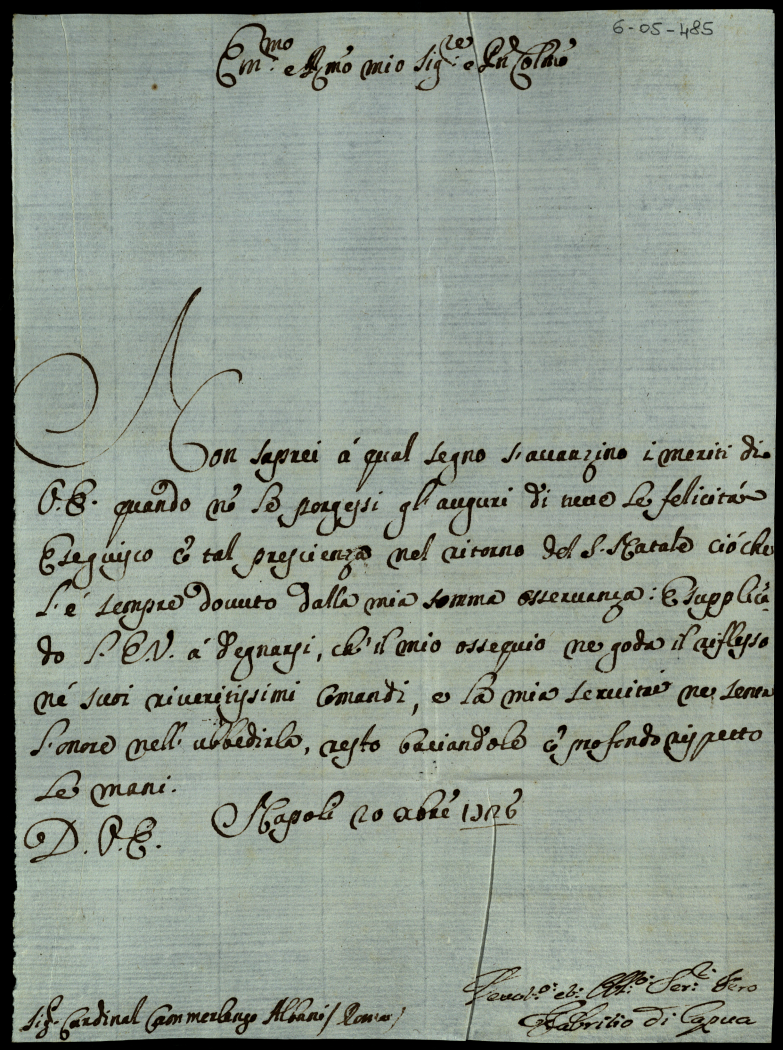 6-05-485
Em.mo e Rmo mio Sig.re e Pn Colmo
Non saprei á qual segno s'auanzino i meriti di
V.E. quando nõ Le porgessi gl'auguri di tutte Le felicitá
Eseguisco cõ tal prescienza nel ritorno del S. Natale ció che
L'é sempre douuto dalla mia somma osseruanza: E supplicã
do L'E.V. á degnarsi, che il mio ossequio ne goda il riflesso
né suoi riueritissimi Comandi, e la mia seruitú ne senta
L'onore nell'ubbedirla, resto baciandole cõ profondo rispetto
Le mani.
D. V. E. Napoli 20 Xbre 1726
Deuot.o et Obb.o Ser.e Vero
Sig.r Cardinal Cammerlengo Albani / Roma /
Fabritio di Capua